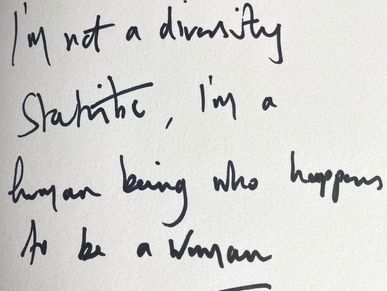 I'm not a diversity
Statistic, I'm a
human being who happens
to be a woman